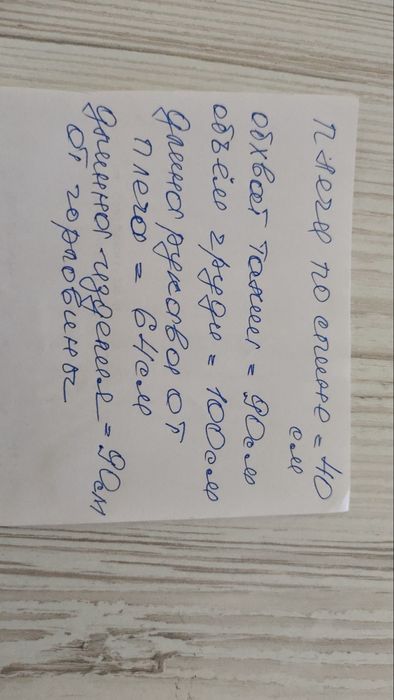 плечи по спине = 40
см
обхват талии = 90см
объём груди = 100см
длина рукава от
плеча = 64см
длинна изделия = 90см
от горловины